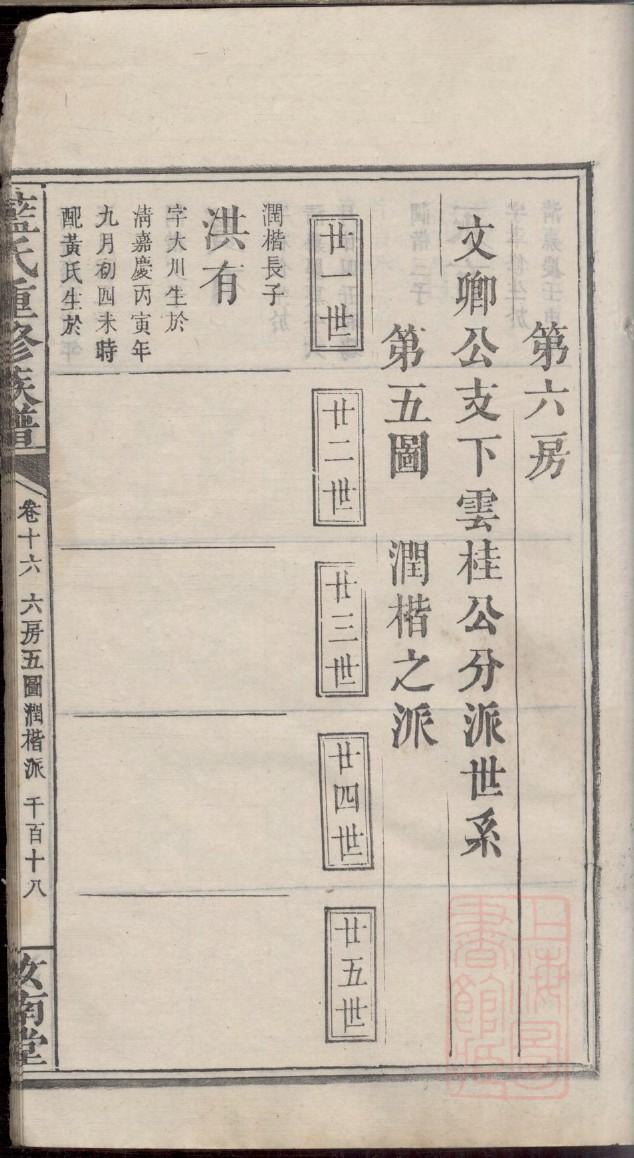 第六房
文卿公支下雲桂公分派世系
第五圖　潤楷之派
廿一世
廿二世
廿三世
廿四世
廿五世
潤楷長子
洪有
字大川生於
清嘉慶丙寅年
九月初四未時
配黃氏生於
藍氏重修族譜
卷十六　六房五圖潤楷派　千百十八
汝南堂
上海圖書館藏